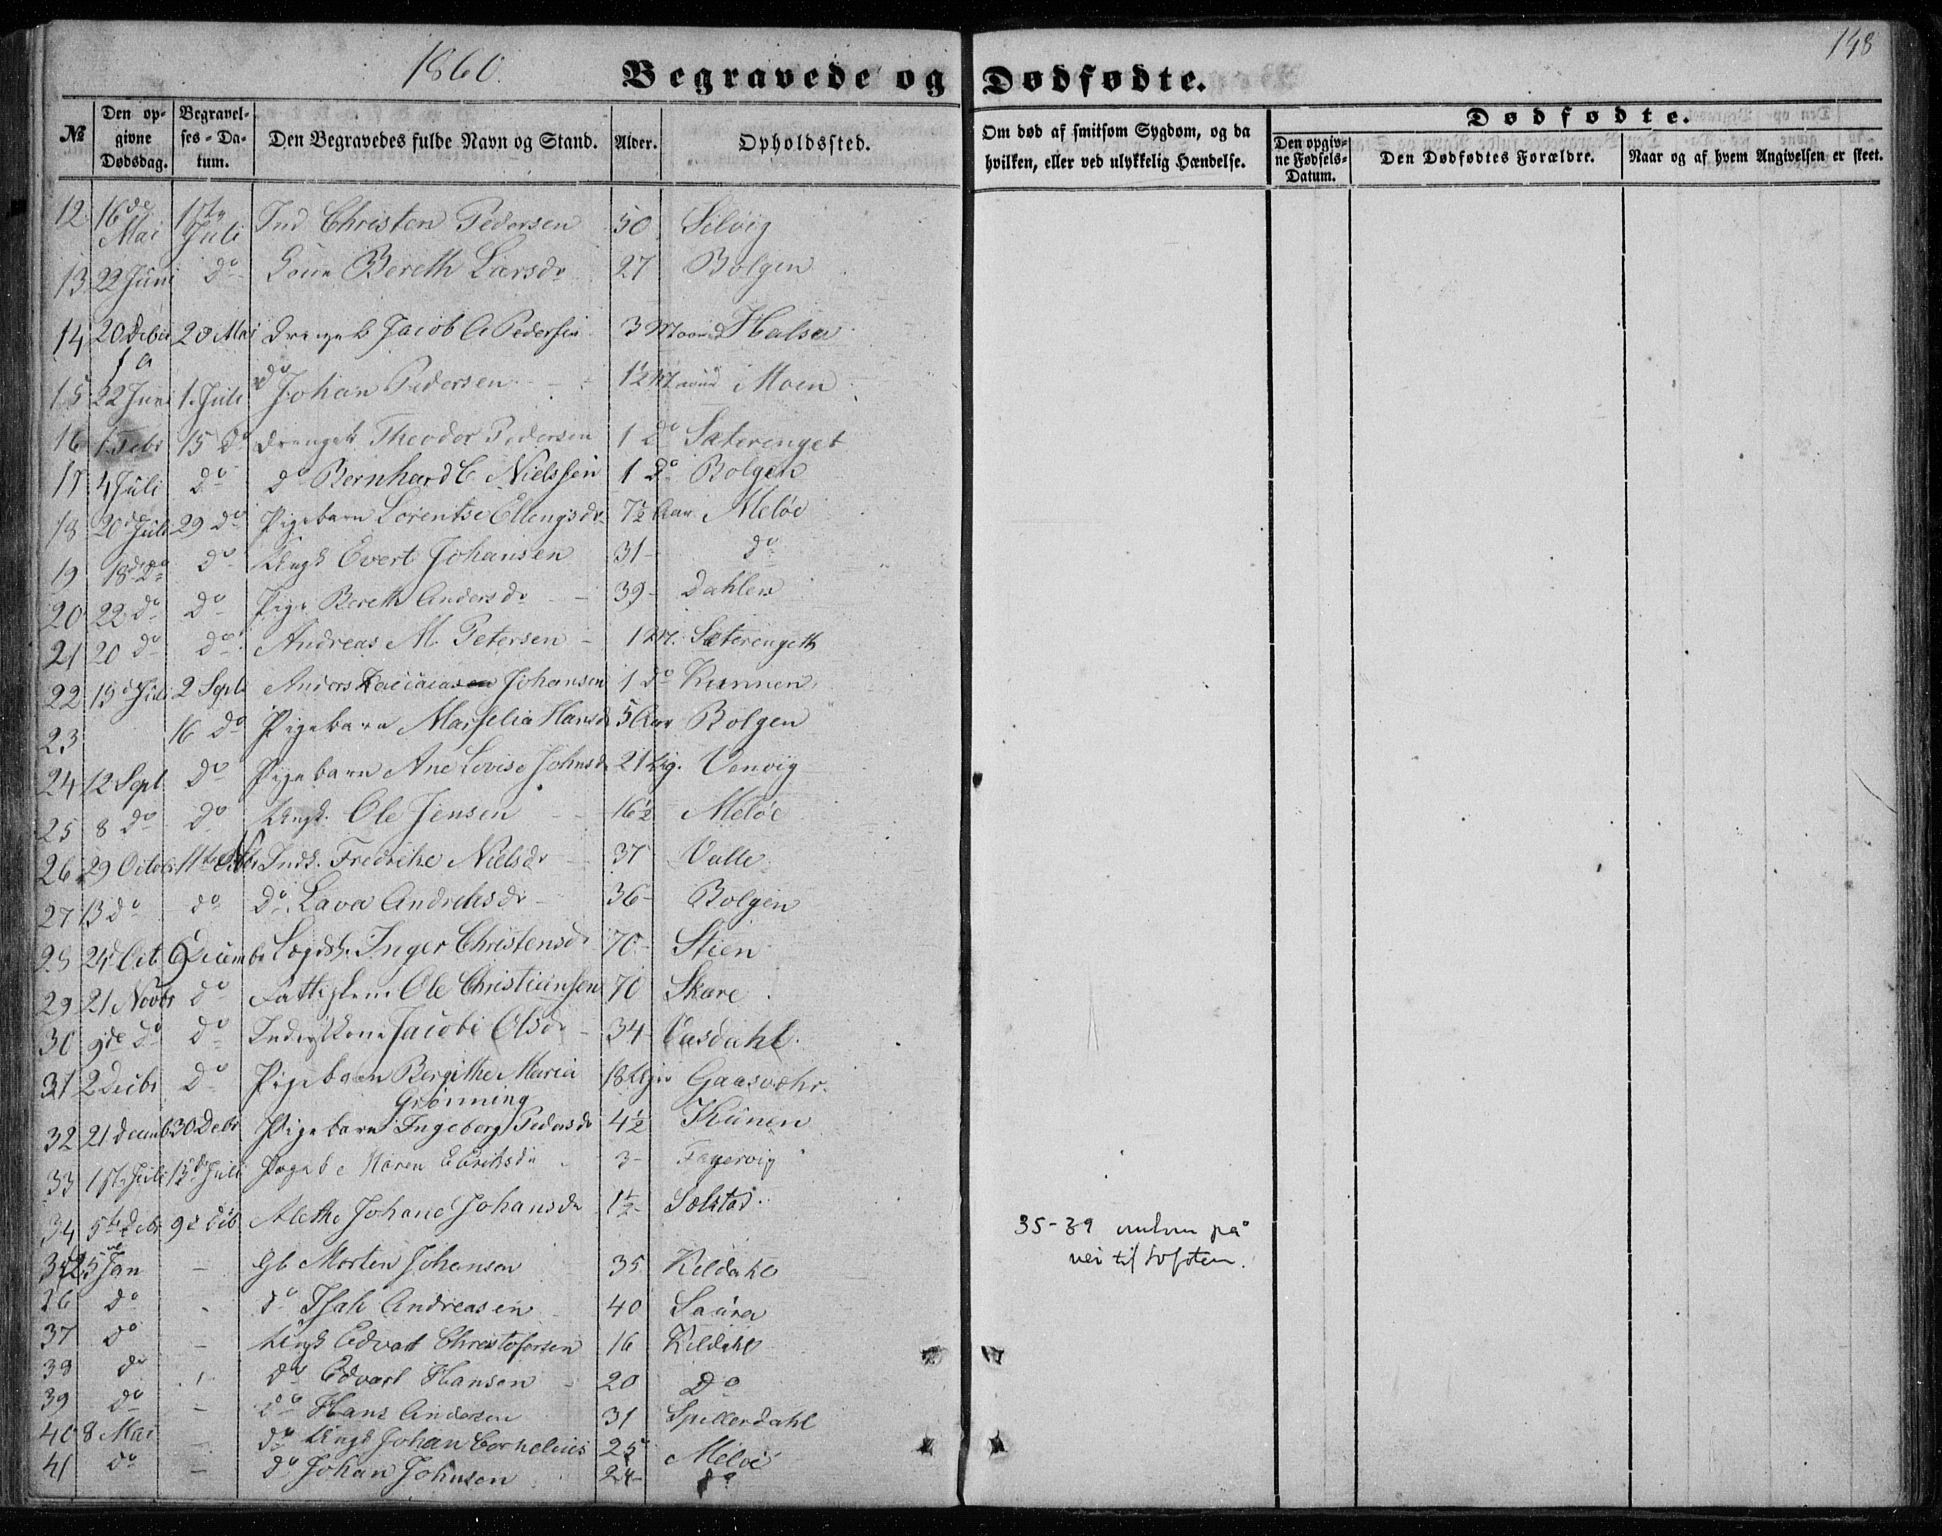 1860.
148
Begravede og Dødfødte.
№ Den opgivne Dødsdag. Begravelses-Datum. Den Begravedes fulde Navn og Stand. Alder. Opholdssted. Om død af smitsom Sygdom, og da hvilken, eller ved ulykkelig Hændelse. Dødfødte. Den opgivne Fødsels-Datum. Den Dødfødtes Forældre. Naar og af hvem Angivelsen er skeet.
12 16de Mai 1ste Juli Ind Christen Pedersen 50 Selvig
13 22 Juni do Bereth Larsdr 27 Bolgen
14 20 20 Mai Drengeb Jacob A Pedersen 3 Maaned Halsa
15 22 Juni 1. Juli do Johan Pedersen 1½ Maaned Moen
16 15 do Drengeb Theodor Pedersen 1 do Sæterenget
17 4 Juli do do Bernhard C Nielssen 1 do Bolgen
18 20de Juli 29 do Pigebarn Lorentse Ellengsdr 7½ Aar Meløe
19 18de do do Ungk Evert Johansen 31 - do
20 22 do do Pige Bereth Andersdr 39 - Dahlen
21 20 do do Andreas M. Petersen 1 M. Sæterengeth
22 15de Juli 2 Sept Anders Johansen 1 do Kunnen
23 16 do Pigebarn Marselia Hansdr 5 Aar Bolgen
24 12 Sept do Pigebarn Ane Lovise Johnsdr 21 Dg. Venvig
25 8 do do Ungk. Ole Jensen 16½ Meløe
26 29 Octobr 11te Inds. Fredrike Nielsdr 37 Valle
27 13 do do do. Lava Andreasdr 36 - Bolgen
28 24 Oct Decembr Lægdsk. Inger Christensdr 70 - Stien
29 21 Novbr do Fattiglem Ole Christiansen 70 Skare
30 9de do do Inderstkone Jacobi Olsdr 34 - Oasdahl
31 2 Decbr do Pigebarn Bergithe Maria Grønning 18 Gaasværhr
32 21 Decemb 30 Decbr Pigebarn Ingeborg Pedersdr 4½ Kunen
33 1ste Juli 15de Juli Pigeb Karen E Eriksdr 3 - Fagervig
34 5te Debr 9 Debr Alethe Johane Johansdr 1½ - Selstad
35 25 Jan - Gb Morten Johansen 35 Keldahl
36 do do Isak Andreasen 40 Saura
37 do - Ungk Edvart Christofersen 16 Keldahl
38 do do Edvart Hansen 20 Do
39 do - do Hans Andersen 31 Spillerdahl
40 8 Mai - do Ungk Johan Cornelius 25 Meløe
41 do - do Johan Johnsen 24 - do
35-39 omkom på
vei til Lofoten.